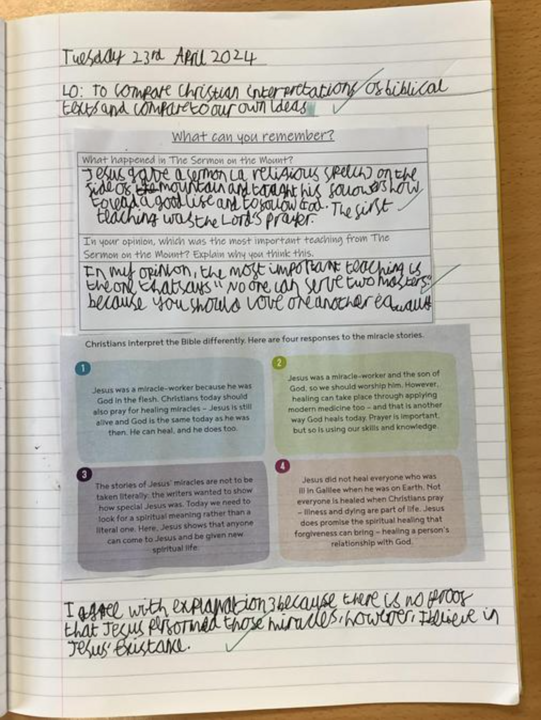 Tuesday 23rd April 2024
LO: To compare Christian interpretations of biblical
texts and compare to our own ideas
What can you remember?
What happened in The Sermon on the Mount?
Jesus gave a sermon (a religious speech) on the
side of the mountain and taught his followers how
to lead a good life and to follow God. The first
teaching was the Lord's prayer.
In your opinion, which was the most important teaching from The
Sermon on the Mount? Explain why you think this.
In my opinion, the most important teaching is
the one that says "No one can serve two masters"
because you should love one another equally
Christians interpret the Bible differently. Here are four responses to the miracle stories.
1
Jesus was a miracle-worker because he was
God in the flesh. Christians today should
also pray for healing miracles – Jesus is still
alive and God is the same today as he was
then. He can heal, and he does too.
2
Jesus was a miracle-worker and the son of
God, so we should worship him. However,
healing can take place through applying
modern medicine too – and that is another
way God heals today. Prayer is important,
but so is using our skills and knowledge.
3
The stories of Jesus' miracles are not to be
taken literally: the writers wanted to show
how special Jesus was. Today we need to
look for a spiritual meaning rather than a
literal one. Here, Jesus shows that anyone
can come to Jesus and be given new
spiritual life.
4
Jesus did not heal everyone who was
ill in Galilee when he was on Earth. Not
everyone is healed when Christians pray
– illness and dying are part of life. Jesus
does promise the spiritual healing that
forgiveness can bring – healing a person's
relationship with God.
I agree with explanation 3 because there is no proof
that Jesus performed those miracles, however, I believe in
Jesus' existance.